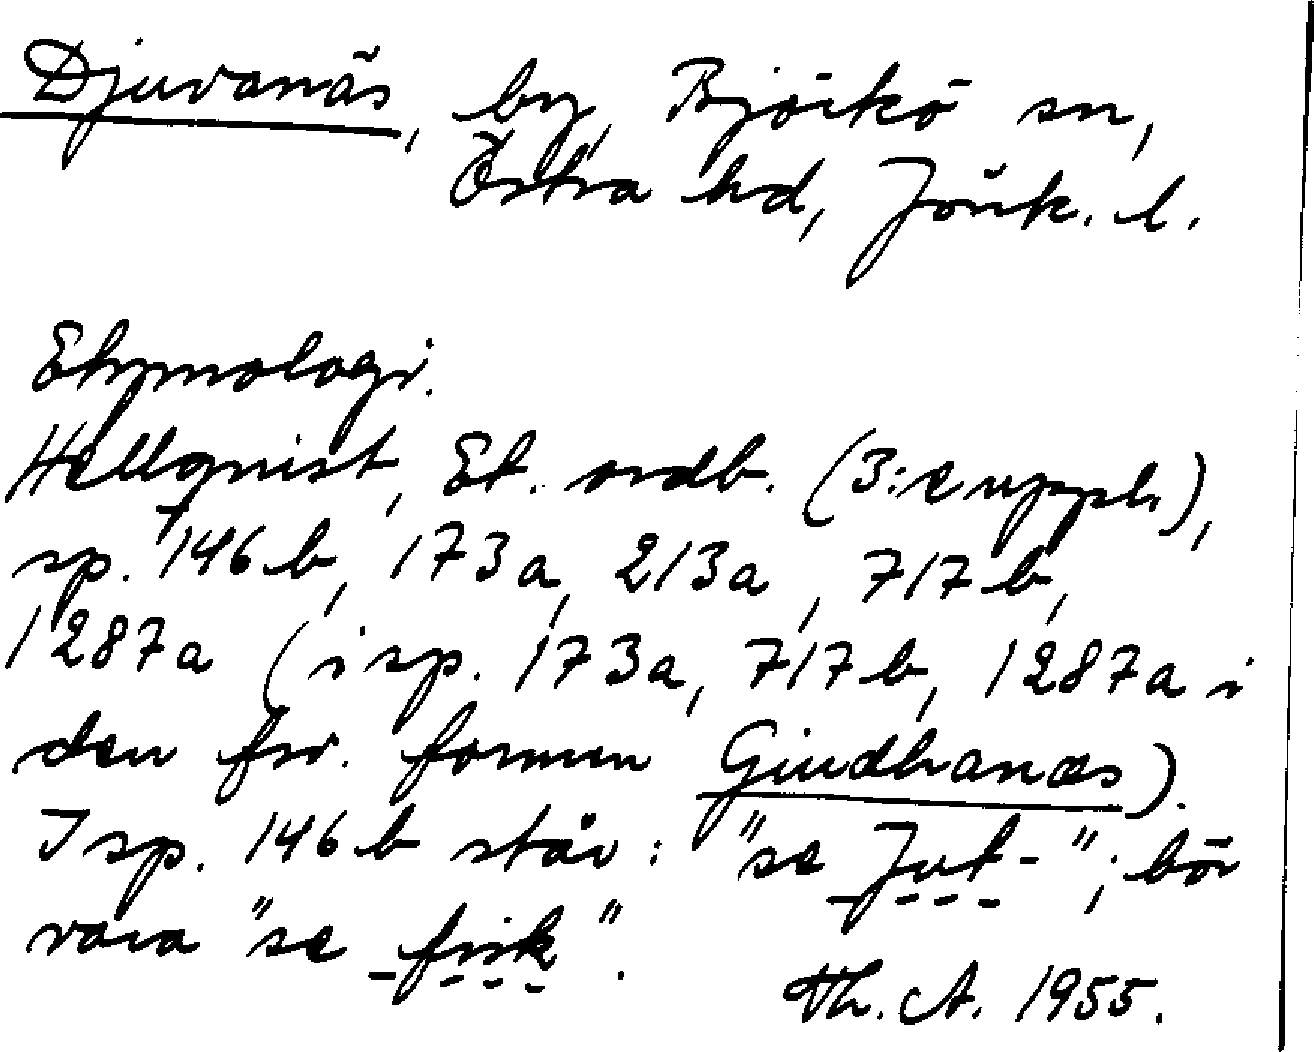 Djuvanäs, by, Björkö sn,
Östra hd, Jönk. l.
Etymologi.
Hellquist, Et. ordb. (3:e uppl.),
sp. 146b, 173a, 213a, 717b,
1287a (i sp. 173a, 717b, 1287a i
den fsv. formen Giudhanæs).
I sp. 146b står: "se Jut-"; bör
vara "se fisk".
Th. A. 1955.